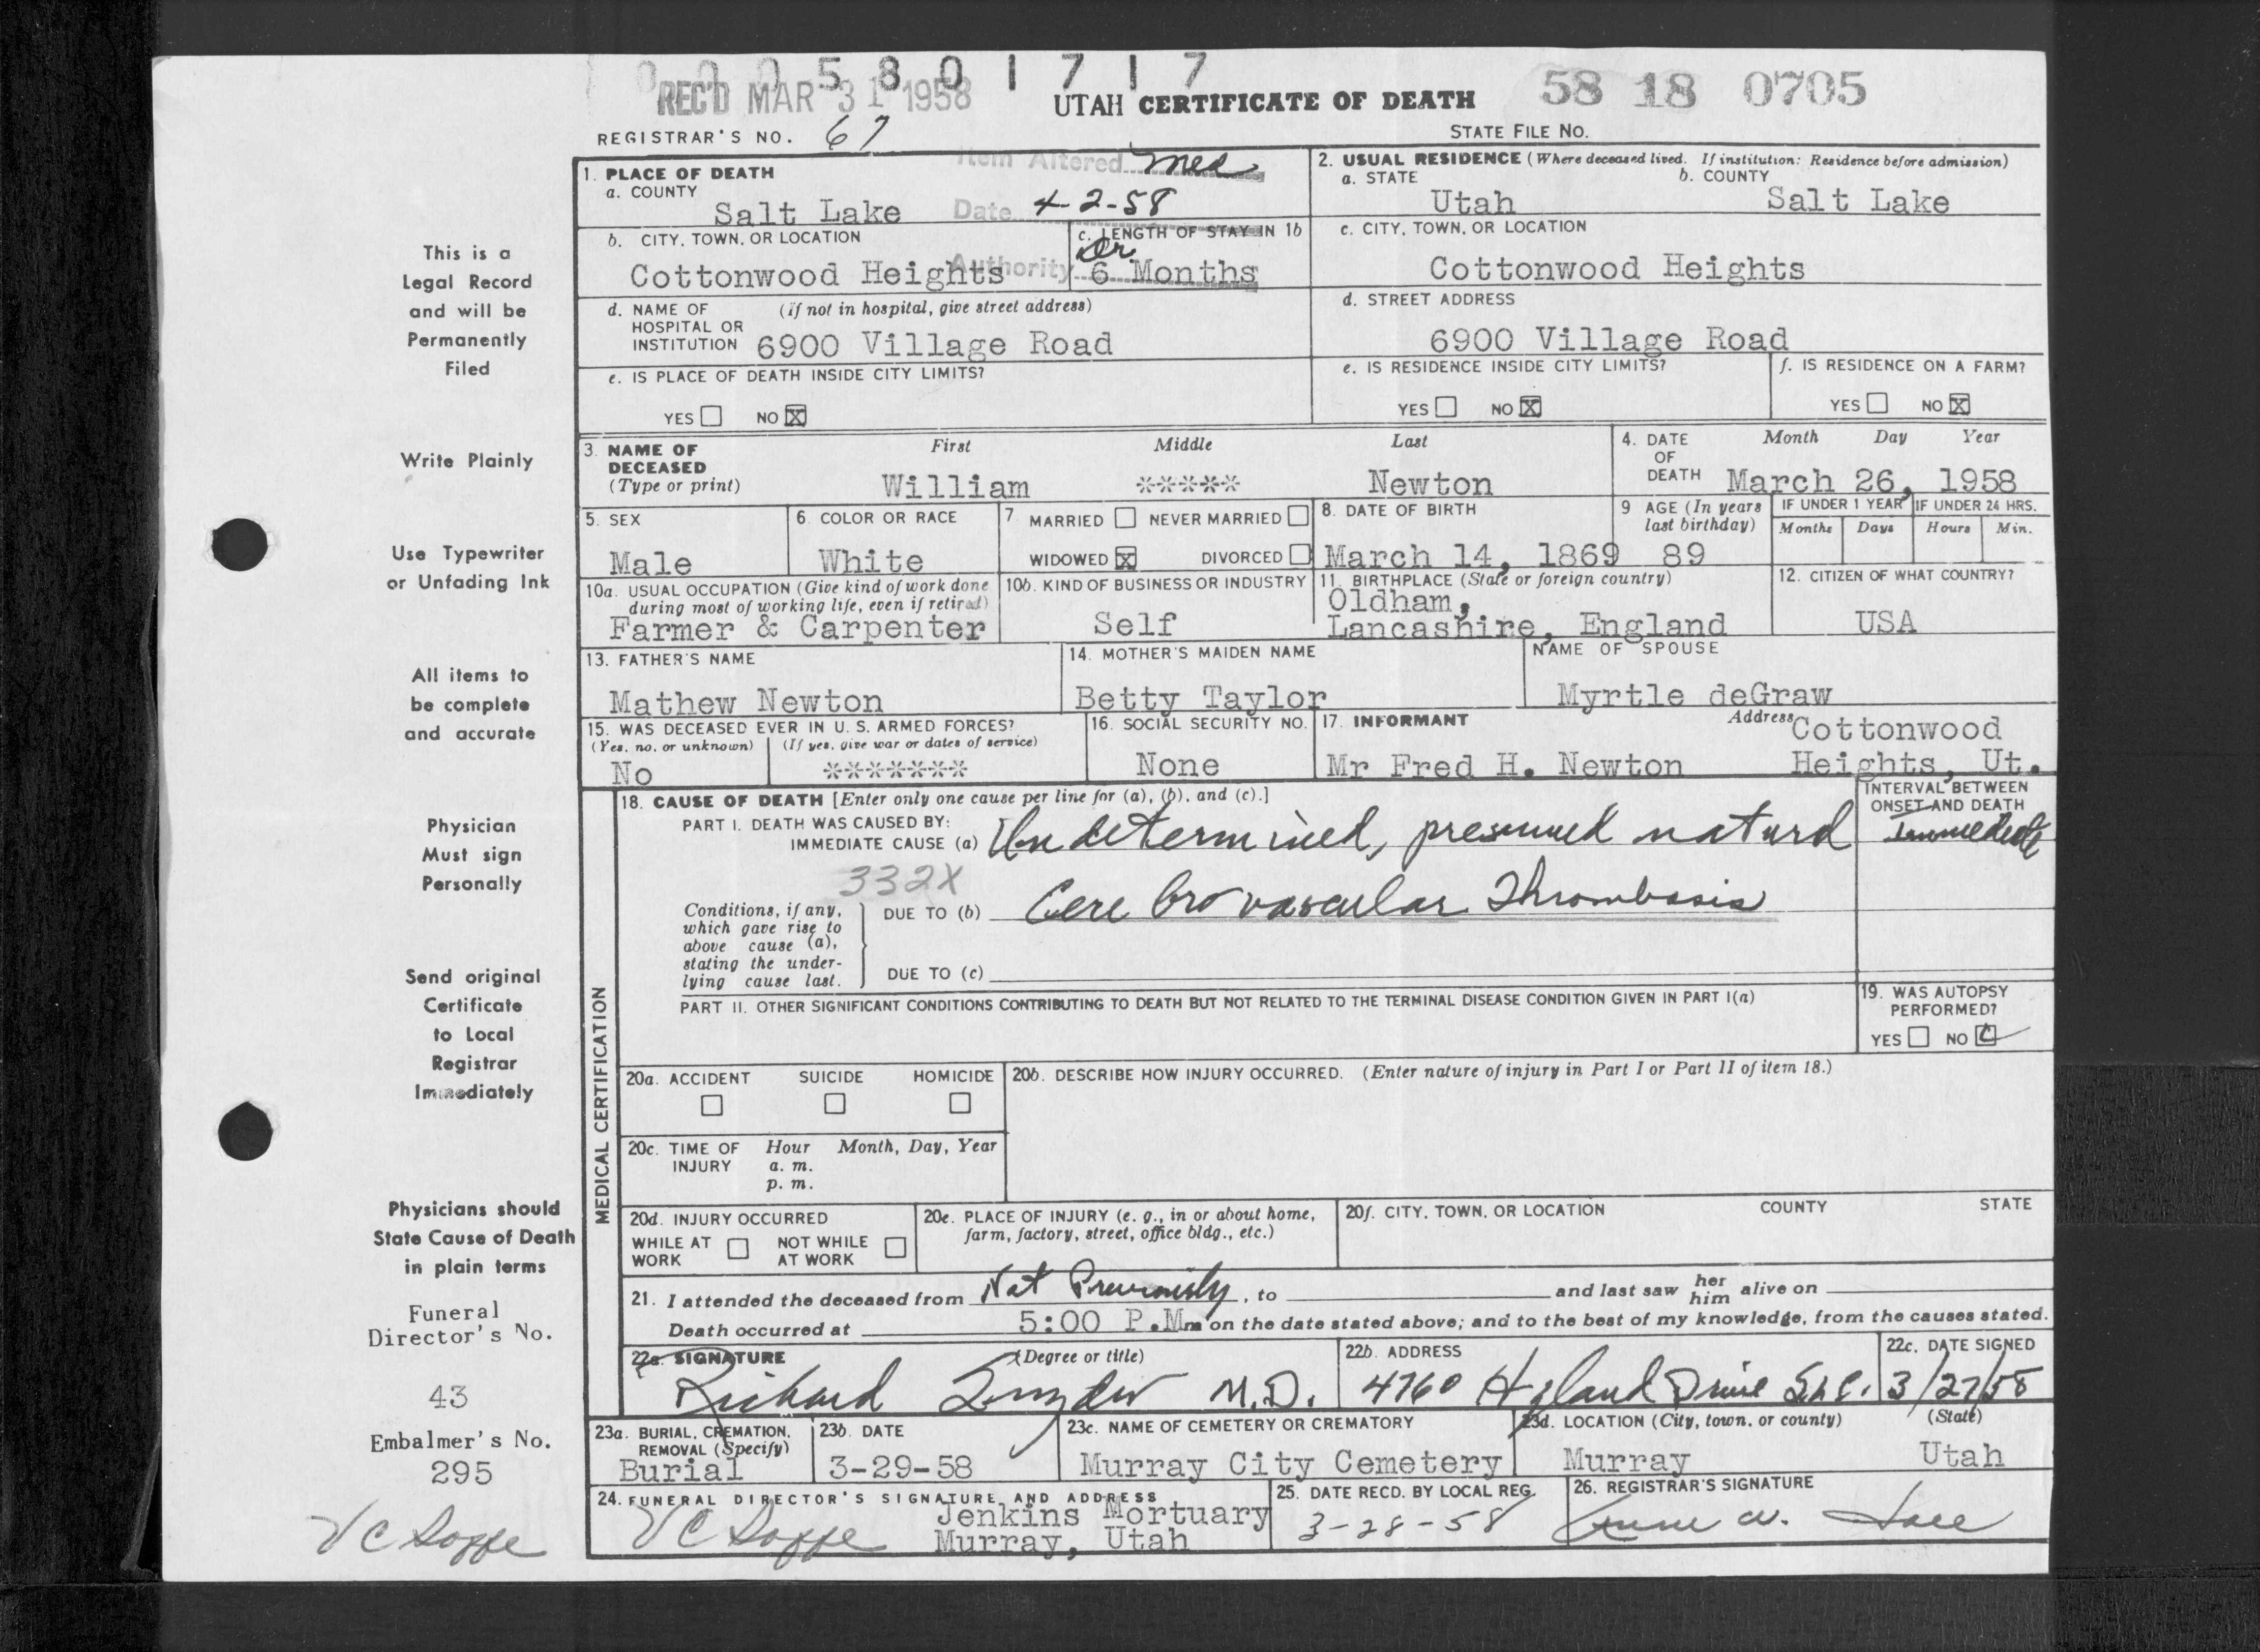 0005801717
REC'D MAR 31 1958
UTAH CERTIFICATE OF DEATH
58 18 0705
REGISTRAR'S NO. 67
STATE FILE NO.
Item Altered
Date 4-2-58
Authority
1. PLACE OF DEATH
a. COUNTY
Salt Lake
2. USUAL RESIDENCE (Where deceased lived. If institution: Residence before admission)
a. STATE b. COUNTY
Utah Salt Lake
b. CITY, TOWN, OR LOCATION
Cottonwood Heights
c. LENGTH OF STAY IN 1b
6 Months
c. CITY, TOWN, OR LOCATION
Cottonwood Heights
d. NAME OF (If not in hospital, give street address)
HOSPITAL OR
INSTITUTION 6900 Village Road
d. STREET ADDRESS
6900 Village Road
e. IS PLACE OF DEATH INSIDE CITY LIMITS?
YES NO X
e. IS RESIDENCE INSIDE CITY LIMITS?
YES NO X
f. IS RESIDENCE ON A FARM?
YES NO X
3. NAME OF
DECEASED
(Type or print)
First Middle Last
William ***** Newton
4. DATE
OF
DEATH
Month Day Year
March 26, 1958
5. SEX
Male
6. COLOR OR RACE
White
7. MARRIED NEVER MARRIED
WIDOWED X DIVORCED
8. DATE OF BIRTH
March 14, 1869
9 AGE (In years
last birthday)
89
IF UNDER 1 YEAR
Months Days
IF UNDER 24 HRS.
Hours Min.
10a. USUAL OCCUPATION (Give kind of work done
during most of working life, even if retired)
Farmer & Carpenter
10b. KIND OF BUSINESS OR INDUSTRY
Self
11. BIRTHPLACE (State or foreign country)
Oldham,
Lancashire, England
12. CITIZEN OF WHAT COUNTRY?
USA
13. FATHER'S NAME
Mathew Newton
14. MOTHER'S MAIDEN NAME
Betty Taylor
NAME OF SPOUSE
Myrtle deGraw
15. WAS DECEASED EVER IN U. S. ARMED FORCES?
(Yes, no, or unknown) (If yes, give war or dates of service)
No *******
16. SOCIAL SECURITY NO.
None
17. INFORMANT Address
Mr Fred H. Newton
Cottonwood
Heights, Ut.
MEDICAL CERTIFICATION
18. CAUSE OF DEATH [Enter only one cause per line for (a), (b), and (c).]
PART I. DEATH WAS CAUSED BY:
IMMEDIATE CAUSE (a) Undetermined, presumed natural
INTERVAL BETWEEN
ONSET AND DEATH
Immediate
332X
Conditions, if any,
which gave rise to
above cause (a),
stating the under-
lying cause last.
DUE TO (b) Cerebrovascular Thrombosis
DUE TO (c)
PART II. OTHER SIGNIFICANT CONDITIONS CONTRIBUTING TO DEATH BUT NOT RELATED TO THE TERMINAL DISEASE CONDITION GIVEN IN PART I(a)
19. WAS AUTOPSY
PERFORMED?
YES NO
20a. ACCIDENT SUICIDE HOMICIDE
20b. DESCRIBE HOW INJURY OCCURRED. (Enter nature of injury in Part I or Part II of item 18.)
20c. TIME OF Hour Month, Day, Year
INJURY a. m.
p. m.
20d. INJURY OCCURRED
WHILE AT NOT WHILE
WORK AT WORK
20e. PLACE OF INJURY (e. g., in or about home,
farm, factory, street, office bldg., etc.)
20f. CITY, TOWN, OR LOCATION COUNTY STATE
21. I attended the deceased from Not Previously, to and last saw her him alive on
Death occurred at 5:00 P.M. m on the date stated above; and to the best of my knowledge, from the causes stated.
22a. SIGNATURE (Degree or title)
Richard M.D.
22b. ADDRESS
4760 Drive
22c. DATE SIGNED
3/27/58
23a. BURIAL, CREMATION,
REMOVAL (Specify)
Burial
23b. DATE
3-29-58
23c. NAME OF CEMETERY OR CREMATORY
Murray City Cemetery
23d. LOCATION (City, town, or county) (State)
Murray Utah
24. FUNERAL DIRECTOR'S SIGNATURE AND ADDRESS
Jenkins Mortuary
Murray, Utah
25. DATE RECD. BY LOCAL REG.
3-28-58
26. REGISTRAR'S SIGNATURE
This is a
Legal Record
and will be
Permanently
Filed
Write Plainly
Use Typewriter
or Unfading Ink
All items to
be complete
and accurate
Physician
Must sign
Personally
Send original
Certificate
to Local
Registrar
Immediately
Physicians should
State Cause of Death
in plain terms
Funeral
Director's No.
43
Embalmer's No.
295